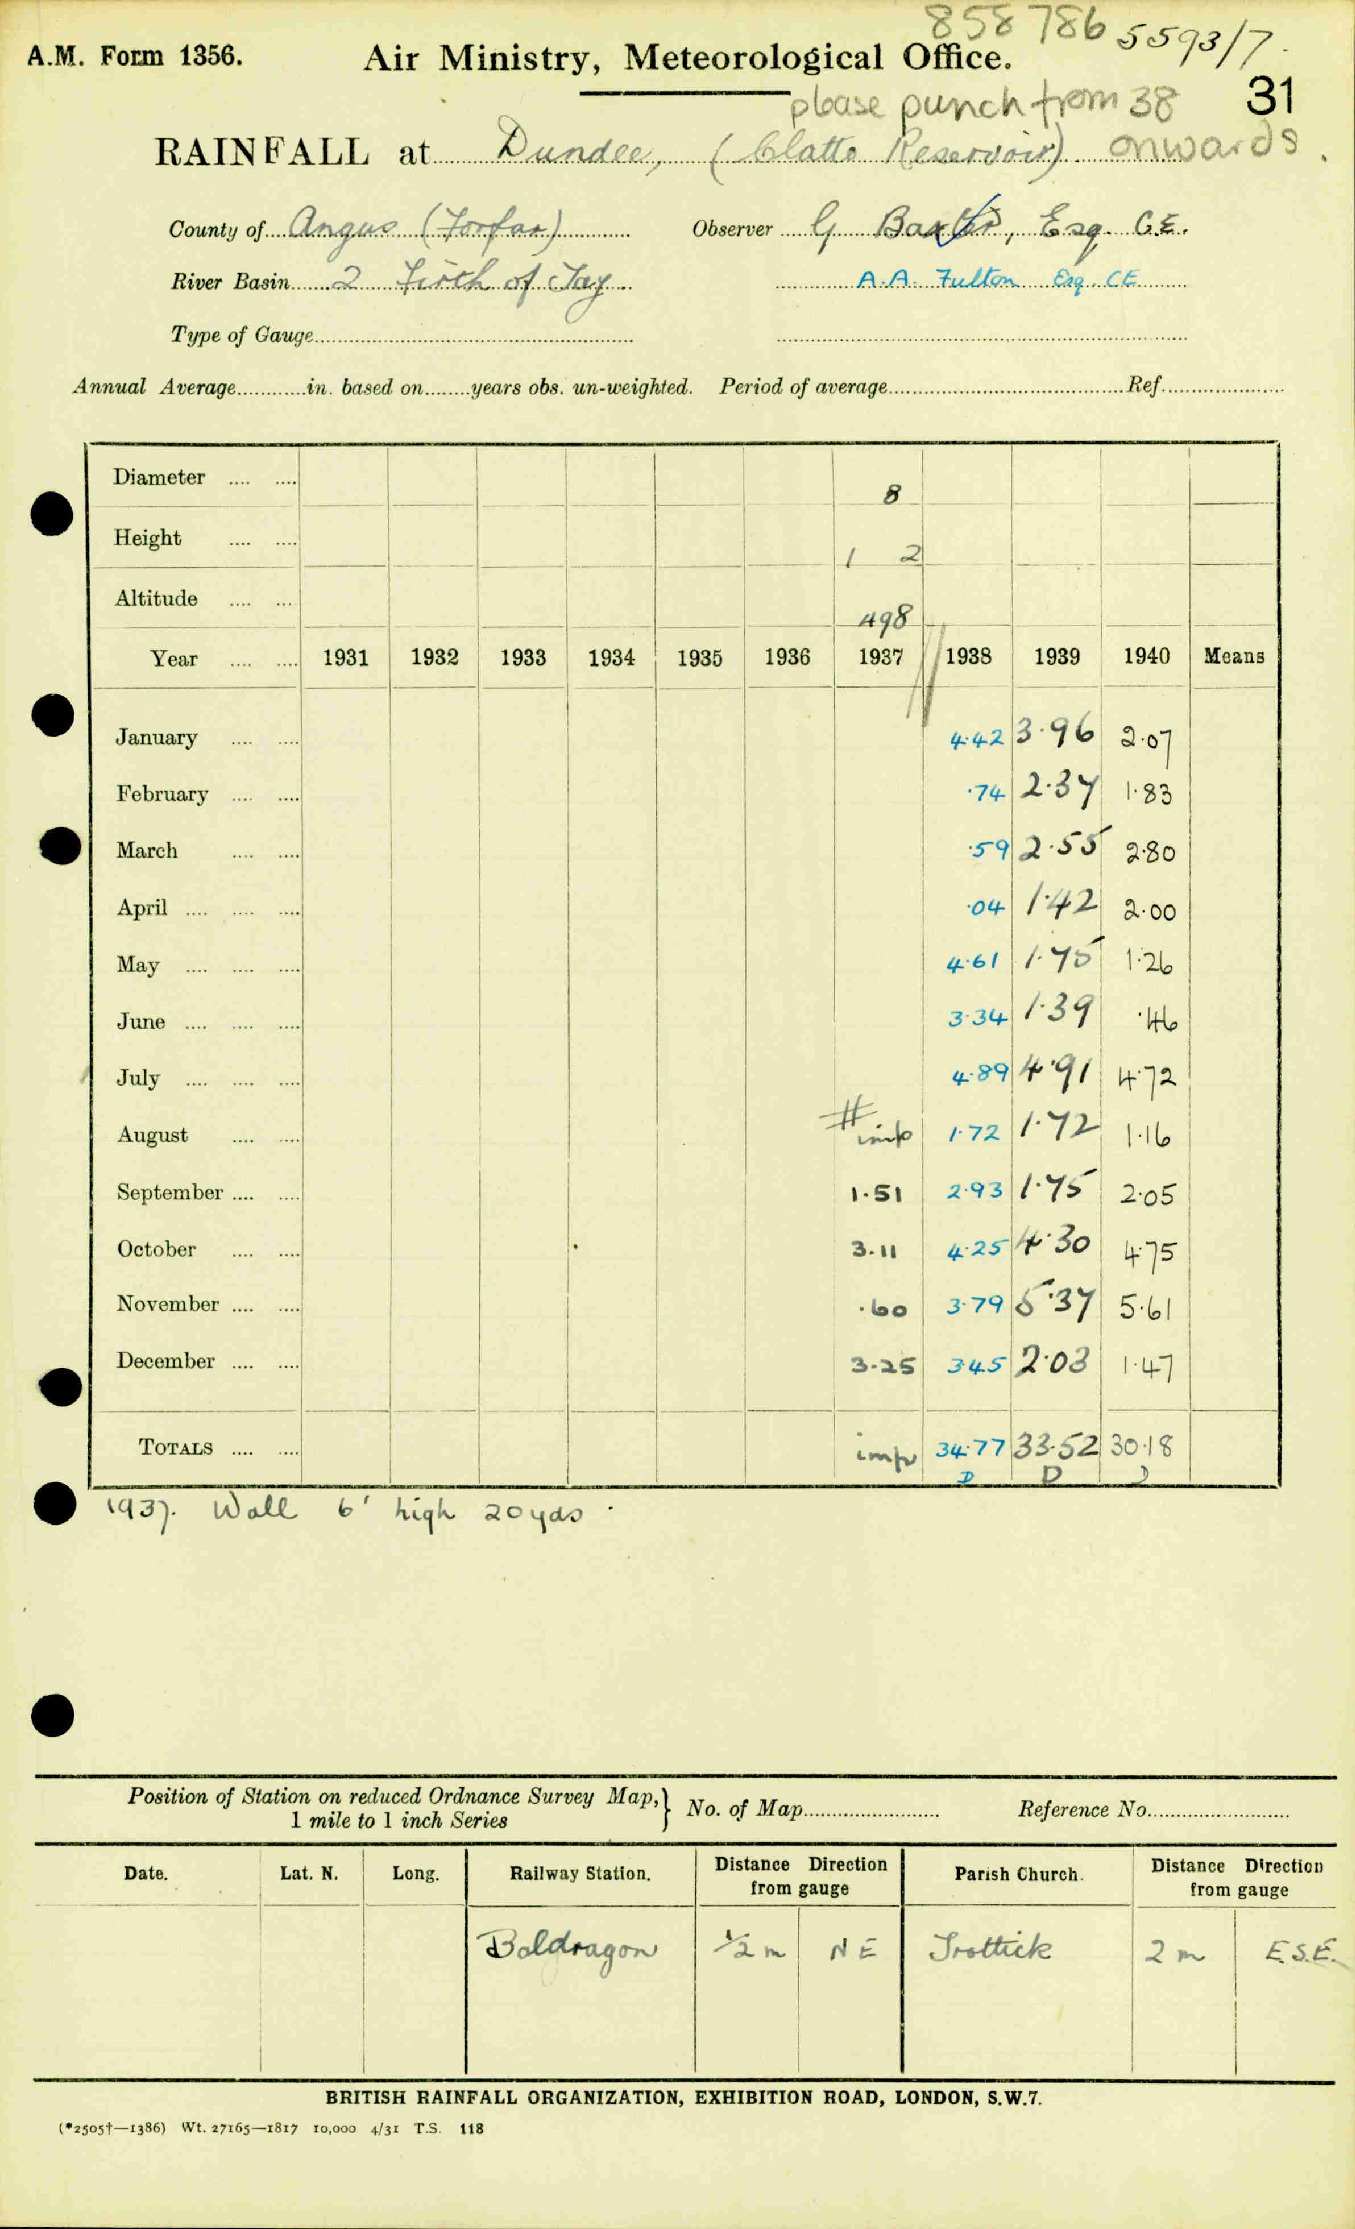 858 786 5593/7.
A.M. Form 1356. Air Ministry, Meteorological Office.
please punch from 38 31
RAINFALL at Dundee, (Clatto Reservoir) onwards.
County of Angus (Forfar) Observer G Baxter, Esq. C.E.
River Basin 2 Firth of Tay. A.A. Fulton Esq. CE
Type of Gauge
Annual Average in. based on years obs. un-weighted. Period of average Ref.
Diameter 8
Height 1 2
Altitude 498
Year 1931 1932 1933 1934 1935 1936 1937 // 1938 1939 1940 Means
January 4.42 3.96 2.07
February .74 2.37 1.83
March .59 2.55 2.80
April .04 1.42 2.00
May 4.61 1.75 1.26
June 3.34 1.39 .46
July 4.89 4.91 4.72
August # imp 1.72 1.72 1.16
September 1.51 2.93 1.75 2.05
October 3.11 4.25 4.30 4.75
November .60 3.79 5.37 5.61
December 3.25 3.45 2.03 1.47
TOTALS imp 34.77 33.52 30.18
D D D
1937. Wall 6' high 20 yds
Position of Station on reduced Ordnance Survey Map,} No. of Map Reference No.
1 mile to 1 inch Series
Date. Lat. N. Long. Railway Station. Distance Direction from gauge Parish Church. Distance Direction from gauge
Baldragon 1/2 m N E Trottick 2 m E.S.E.
BRITISH RAINFALL ORGANIZATION, EXHIBITION ROAD, LONDON, S.W.7.
(*2505†—1386) Wt. 27165—1817 10,000 4/31 T.S. 118